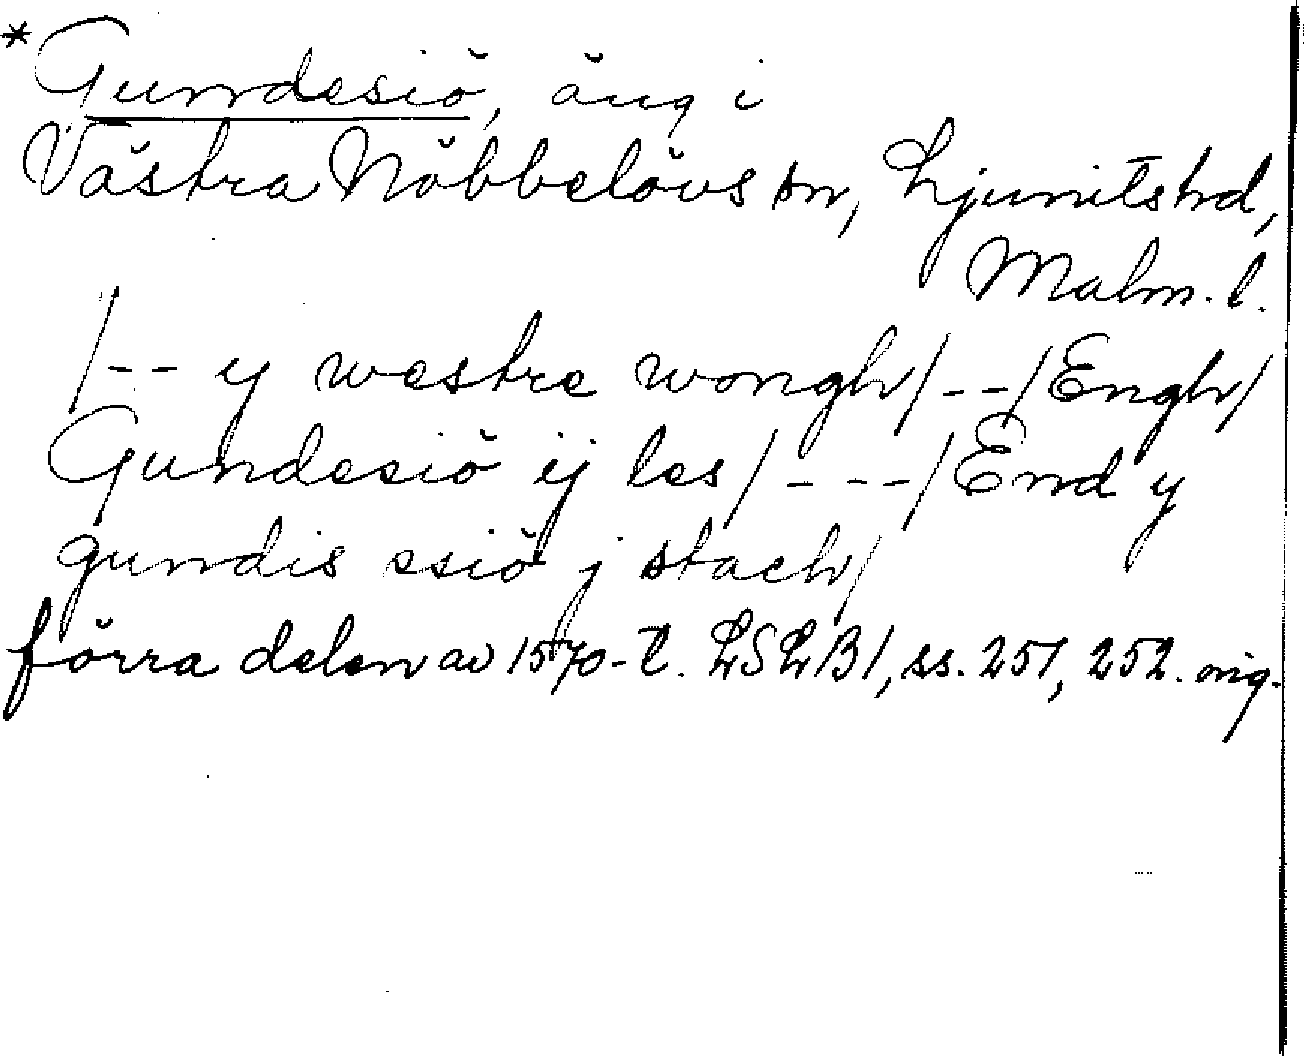 *Gundesiö, äng i
Västra Nöbbelövs sn, Ljunits hd,
Malm. l.
/-- y westre wongh/--/Engh/
Gundesiö ij les/---/End y
gundis ssiö j stach/
förra delen av 1570-t. LSLB1, ss. 251, 252. orig.